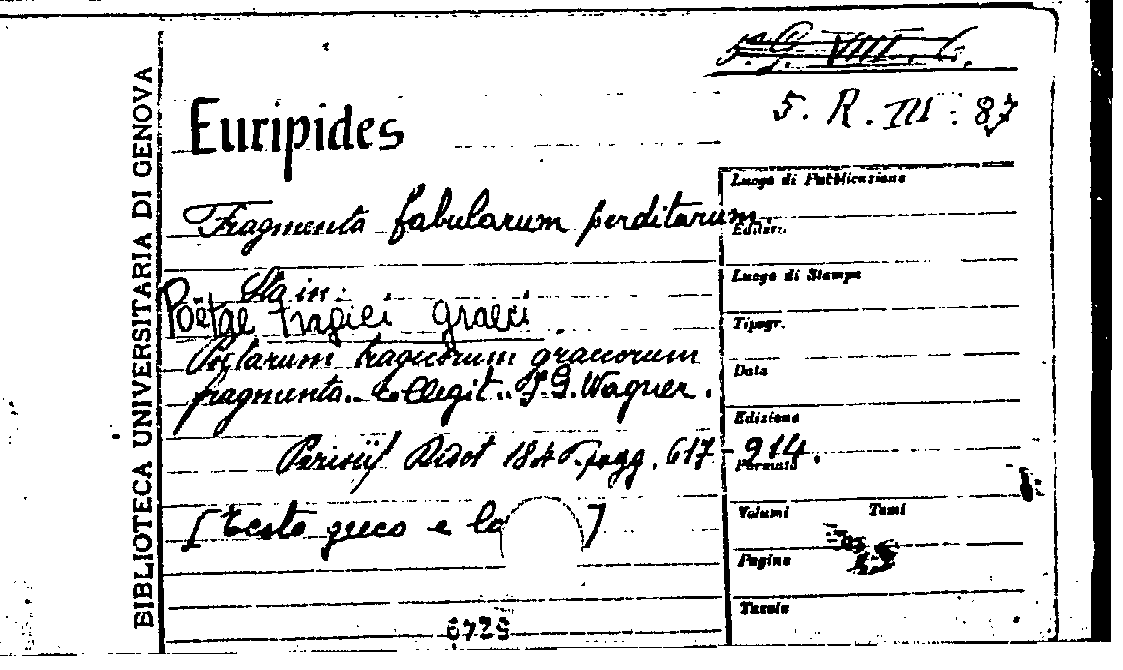 BIBLIOTECA UNIVERSITARIA DI GENOVA
5. R. III. 87
Euripides
Fragmenta fabularum perditarum.
Sta in:
Poëtae tragici graeci
Poetarum tragicorum graecorum
fragmenta. collegit. F. G. Wagner.
Parisiis Didot pagg. 617-914.
[Testo greco e ]
Luogo di Pubblicazione
Editore
Luogo di Stampa
Tipogr.
Data
Edizione
Formato
Volumi Tomi
Pagine
Tavole
6725